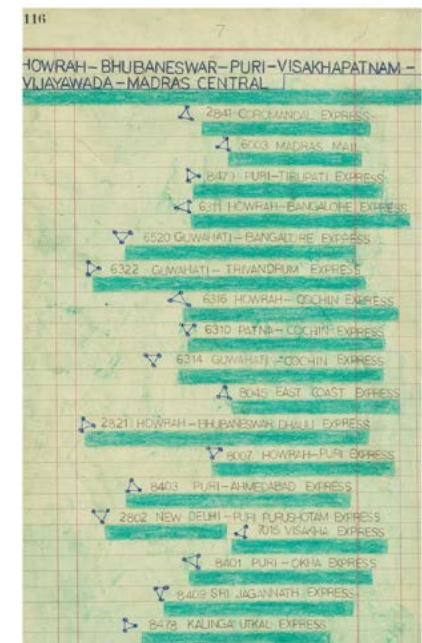 116
7
HOWRAH-BHUBANESWAR-PURI-VISAKHAPATNAM-
VIJAYAWADA-MADRAS CENTRAL
2841 COROMANDAL EXPRESS
6003 MADRAS MAIL
8479 PURI-TIRUPATI EXPRESS
6311 HOWRAH-BANGALORE EXPRESS
6520 GUWAHATI-BANGALORE EXPRESS
6322 GUWAHATI-TRIVANDRUM EXPRESS
6316 HOWRAH-COCHIN EXPRESS
6310 PATNA-COCHIN EXPRESS
6314 GUWAHATI-COCHIN EXPRESS
8045 EAST COAST EXPRESS
2821 HOWRAH-BHUBANESWAR DHAULI EXPRESS
8007 HOWRAH-PURI EXPRESS
8403 PURI-AHMEDABAD EXPRESS
2802 NEW DELHI-PURI PURUSHOTAM EXPRESS
7015 VISAKHA EXPRESS
8401 PURI-OKHA EXPRESS
8409 SRI JAGANNATH EXPRESS
8478 KALINGA UTKAL EXPRESS